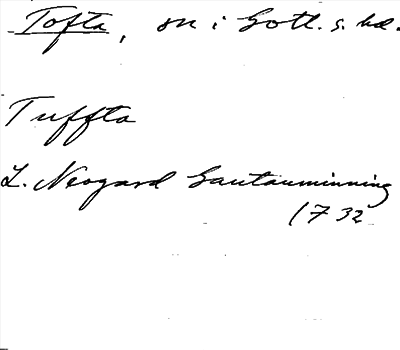 Tofta, sn i Gotl. s. hd.
Tuffta
L. Neogard Gautauminning
1732